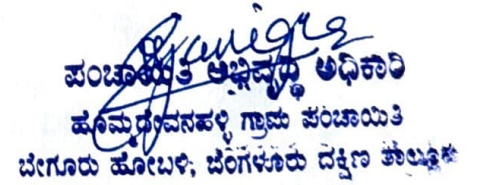 ಪಂಚಾಯಿತಿ ಅಭಿವೃದ್ಧಿ ಅಧಿಕಾರಿ
ಹೊಮ್ಮದೇವನಹಳ್ಳಿ ಗ್ರಾಮ ಪಂಚಾಯಿತಿ
ಬೇಗೂರು ಹೋಬಳಿ, ಬೆಂಗಳೂರು ದಕ್ಷಿಣ ತಾಲ್ಲೂಕು